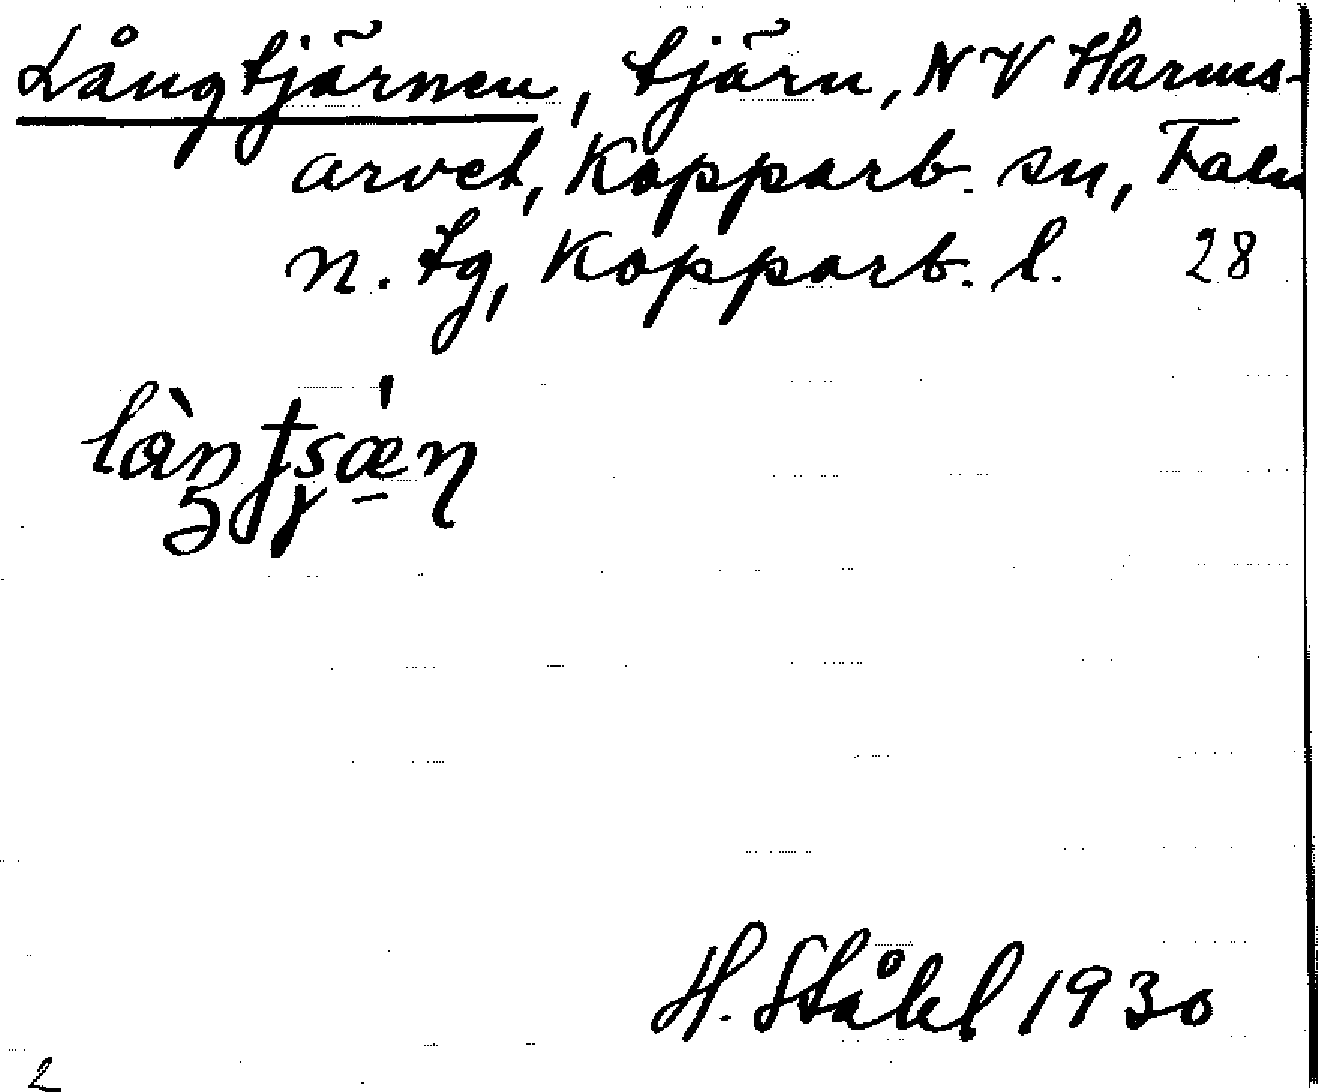 Långtjärnen, tjärn, NV Harms-
arvet, Kopparb. sn, Falu
n. tg, Kopparb. l. 28
H. Ståhl 1930
2